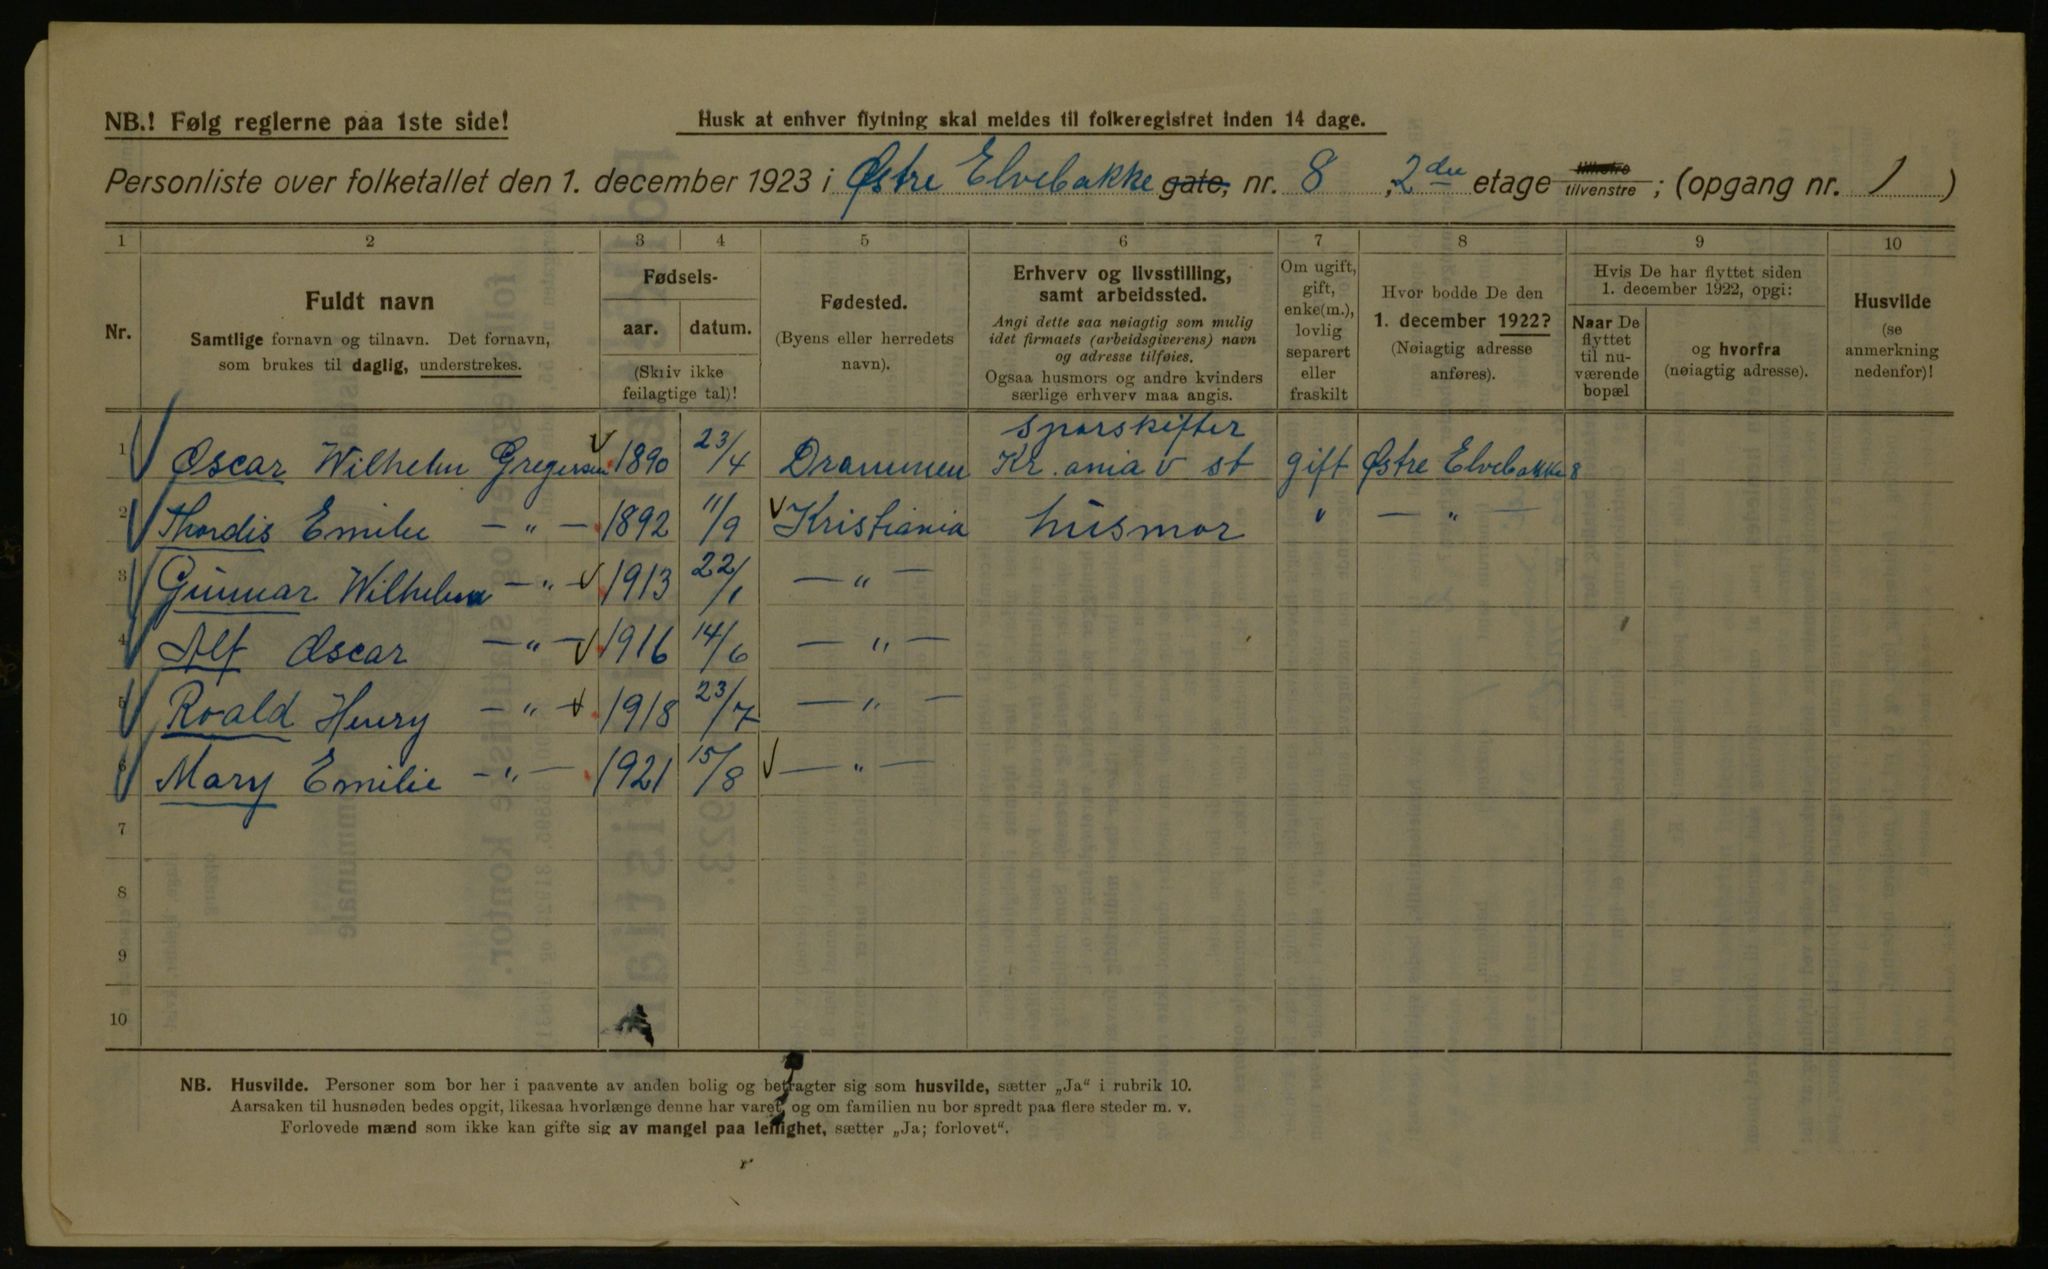 NB.! Følg reglerne paa 1ste side!
Husk at enhver flytning skal meldes til folkeregistret inden 14 dage.
Personliste over folketallet den 1. december 1923 i Østre Elvebakke gate, nr. 8, 2den etage tilhøire tilvenstre; (opgang nr. 1)
1 2 3 4 5 6 7 8 9 10
Nr.
Fuldt navn
Samtlige fornavn og tilnavn. Det fornavn,
som brukes til daglig, understrekes.
Fødsels-
aar. datum.
(Skriv ikke
feilagtige tal)!
Fødested.
(Byens eller herredets
navn).
Erhverv og livsstilling,
samt arbeidssted.
Angi dette saa nøiagtig som mulig
idet firmaets (arbeidsgiverens) navn
og adresse tilføies.
Ogsaa husmors og andre kvinders
særlige erhverv maa angis.
Om ugift,
gift,
enke(m.),
lovlig
separert
eller
fraskilt
Hvor bodde De den
1. december 1922?
(Nøiagtig adresse
anføres).
Hvis De har flyttet siden
1. december 1922, opgi:
Naar De
flyttet
til nu-
værende
bopæl
og hvorfra
(nøiagtig adresse).
Husvilde
(se
anmerkning
nedenfor)!
sporskifter
1 Oscar Wilhelm Gregersen 1890 23/4 Drammen Kr.ania v st gift Østre Elvebakke 8
2 Thordis Emilie — " — 1892 11/9 Kristiania husmor " — " —
3 Gunnar Wilhelm — " — 1913 22/1 — " —
4 Alf Oscar — " — 1916 14/6 — " —
5 Roald Henry — " — 1918 23/7 — " —
6 Mary Emilie — " — 1921 15/8 — " —
7
8
9
10
NB. Husvilde. Personer som bor her i paavente av anden bolig og betragter sig som husvilde, sætter „Ja" i rubrik 10.
Aarsaken til husnøden bedes opgit, likesaa hvorlænge denne har varet, og om familien nu bor spredt paa flere steder m. v.
Forlovede mænd som ikke kan gifte sig av mangel paa leilighet, sætter „Ja; forlovet".